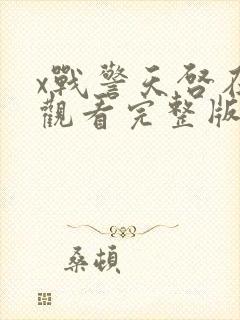 x戰警天啓在
觀看完整版
桑頓